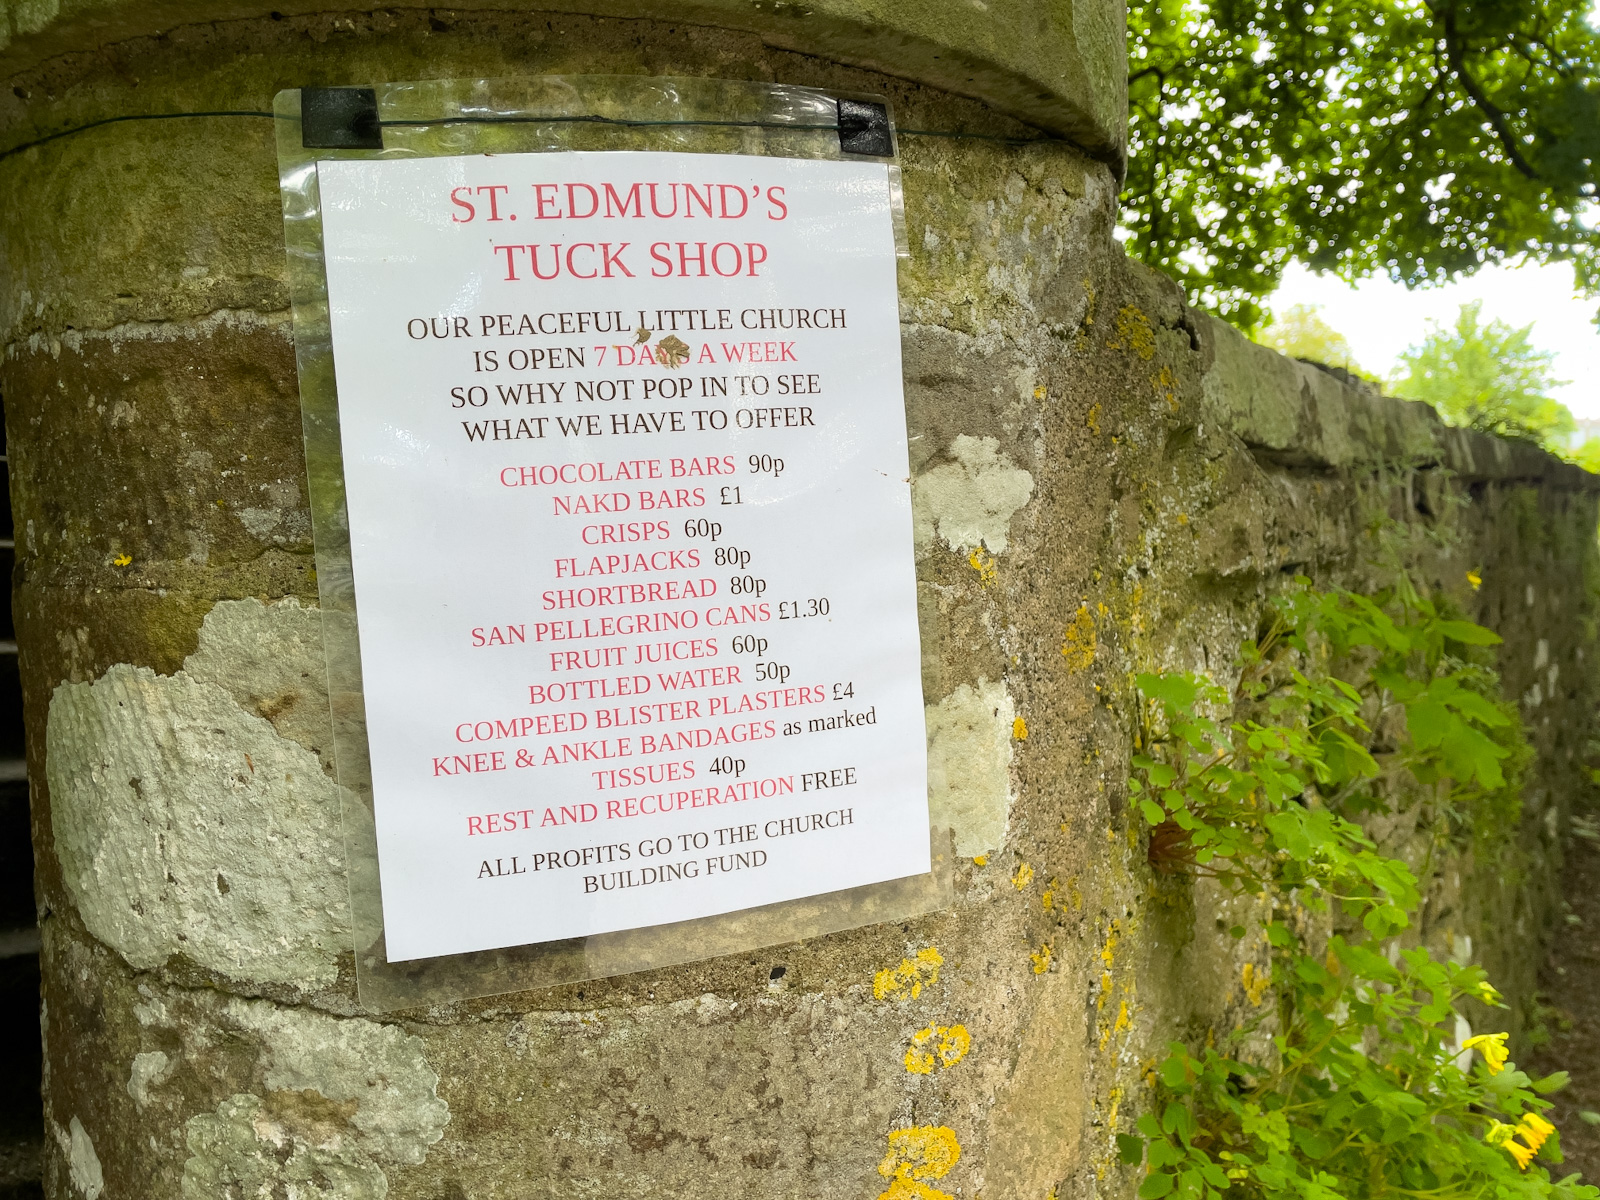 ST. EDMUND'S
TUCK SHOP
OUR PEACEFUL LITTLE CHURCH
IS OPEN 7 DAYS A WEEK
SO WHY NOT POP IN TO SEE
WHAT WE HAVE TO OFFER
CHOCOLATE BARS 90p
NAKD BARS £1
CRISPS 60p
FLAPJACKS 80p
SHORTBREAD 80p
SAN PELLEGRINO CANS £1.30
FRUIT JUICES 60p
BOTTLED WATER 50p
COMPEED BLISTER PLASTERS £4
KNEE & ANKLE BANDAGES as marked
TISSUES 40p
REST AND RECUPERATION FREE
ALL PROFITS GO TO THE CHURCH
BUILDING FUND